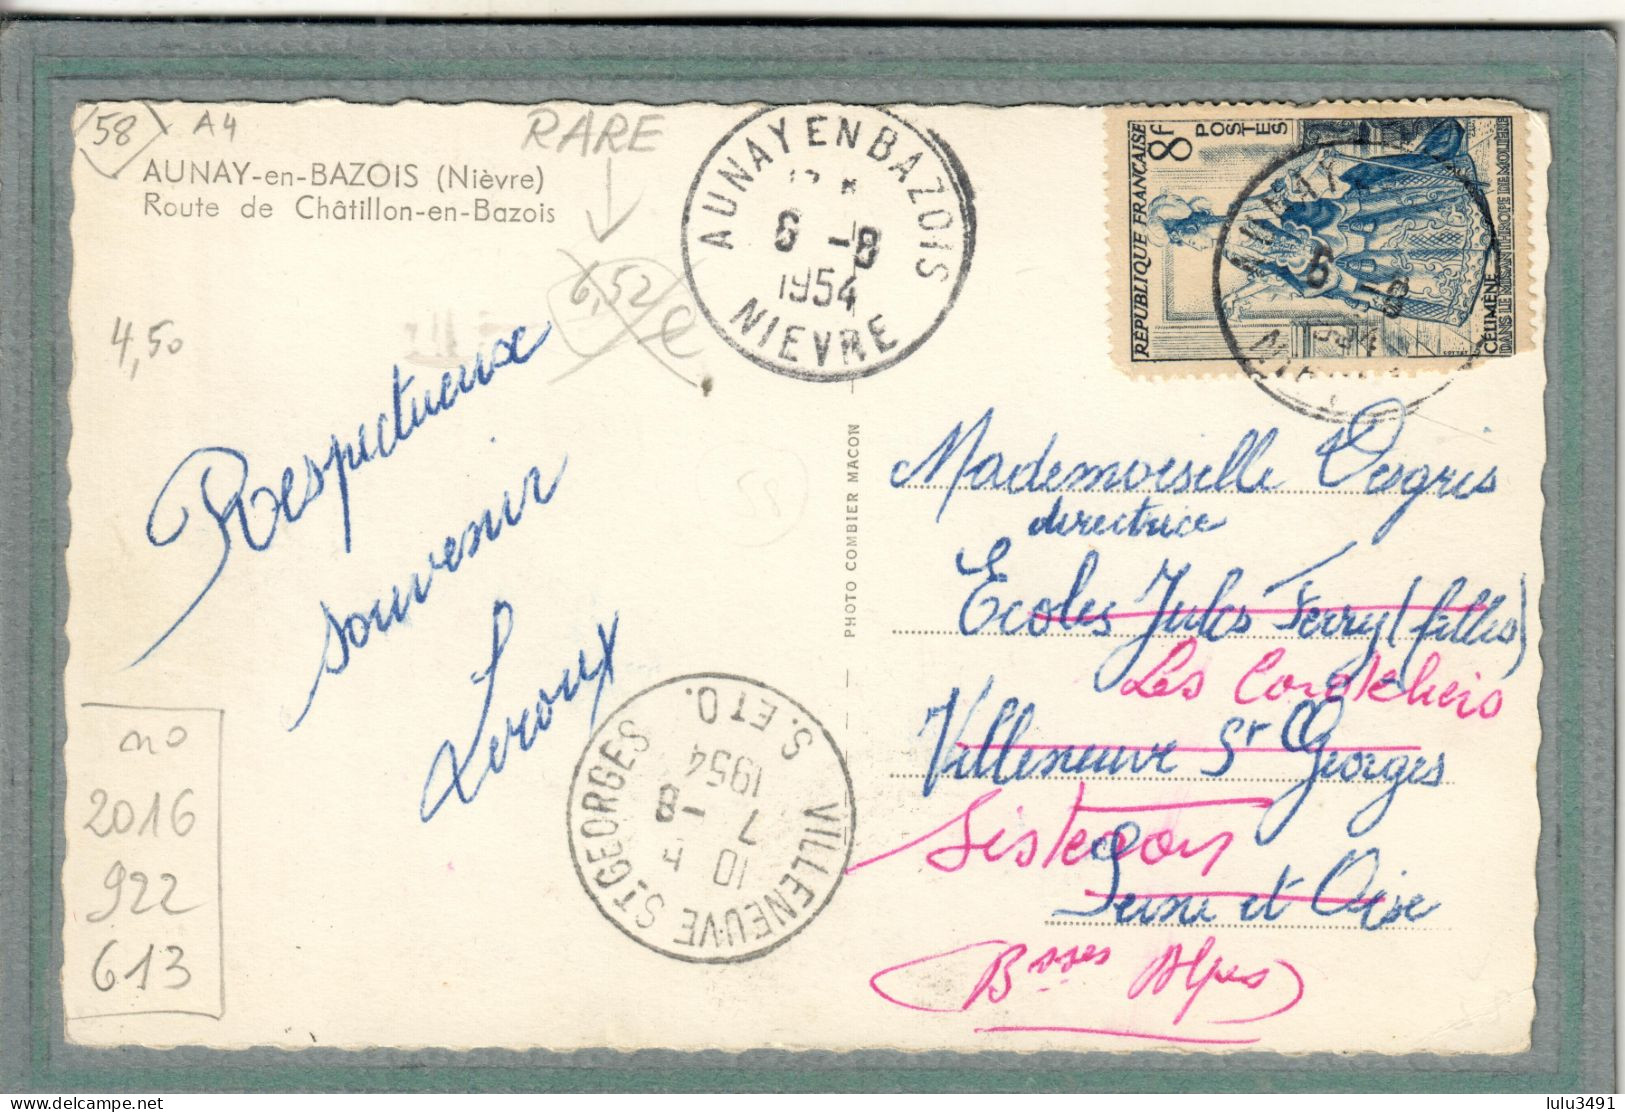 58
A4
RARE
AUNAY-en-BAZOIS (Nièvre)
Route de Châtillon-en-Bazois
6,52 €
4,50
AUNAY EN BAZOIS
6 -8
1954
NIEVRE
RÉPUBLIQUE FRANÇAISE
8f
POSTES
CÉLIMÈNE
DANS LE MISANTHROPE DE MOLIÈRE
AUNAY
6 -8
1954
Respectueux
souvenir
Leroux
58
PHOTO COMBIER MACON
Mademoiselle Desgris
directrice
Ecoles Jules Ferry (filles)
Les Cordeliers
Villeneuve St Georges
Sisteron
Seine et Oise
(Bsses Alpes)
VILLENEUVE ST GEORGES
10 H
7 -8
1954
S. ET O.
no
2016
922
613
delcampe.net
lulu3491